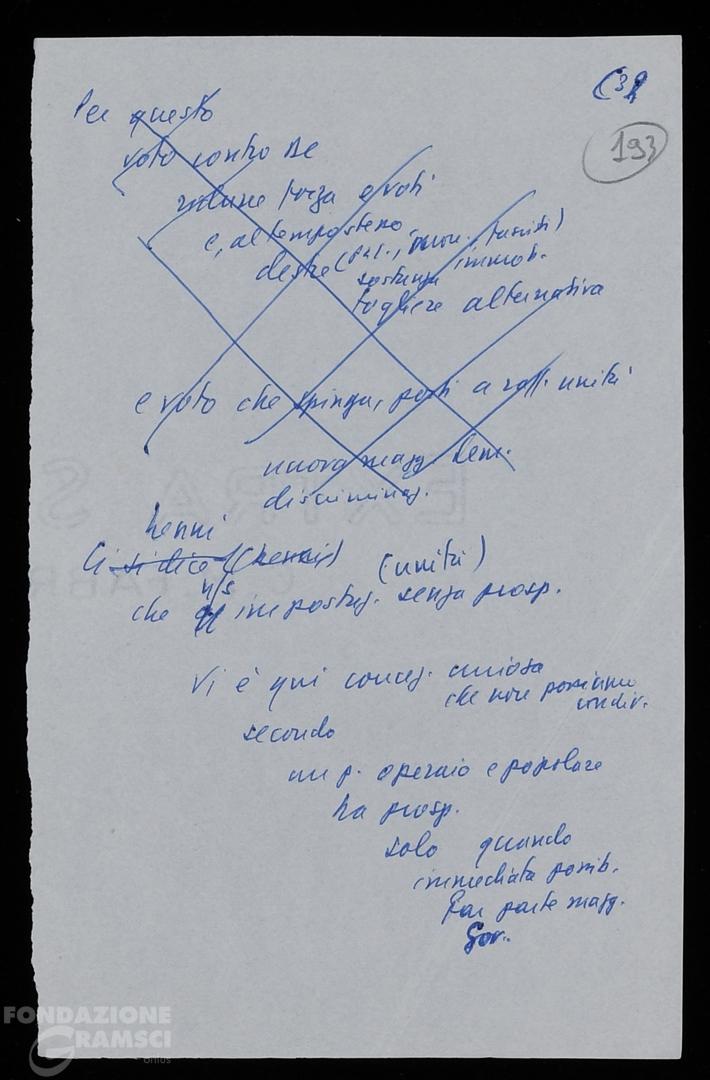 193
Per questo
voto contro DC
ridurre forza e voti
e, al tempo stesso
destre (P.L.I., mon., fascisti)
sostanza immob.
togliere alternativa
e voto che spinga, porti a raff. unità
nuova magg. dem.
discriminaz.
Nenni
Ci si dice (Nennis) (unità)
che n/s impostaz. senza prosp.
Vi è qui concez. curiosa
che non possiamo
condiv.
secondo
un p. operaio e popolare
ha prosp.
solo quando
immediata possib.
far parte magg.
Gov.
EXTRA S
FABR
FONDAZIONE
GRAMSCI
onlus